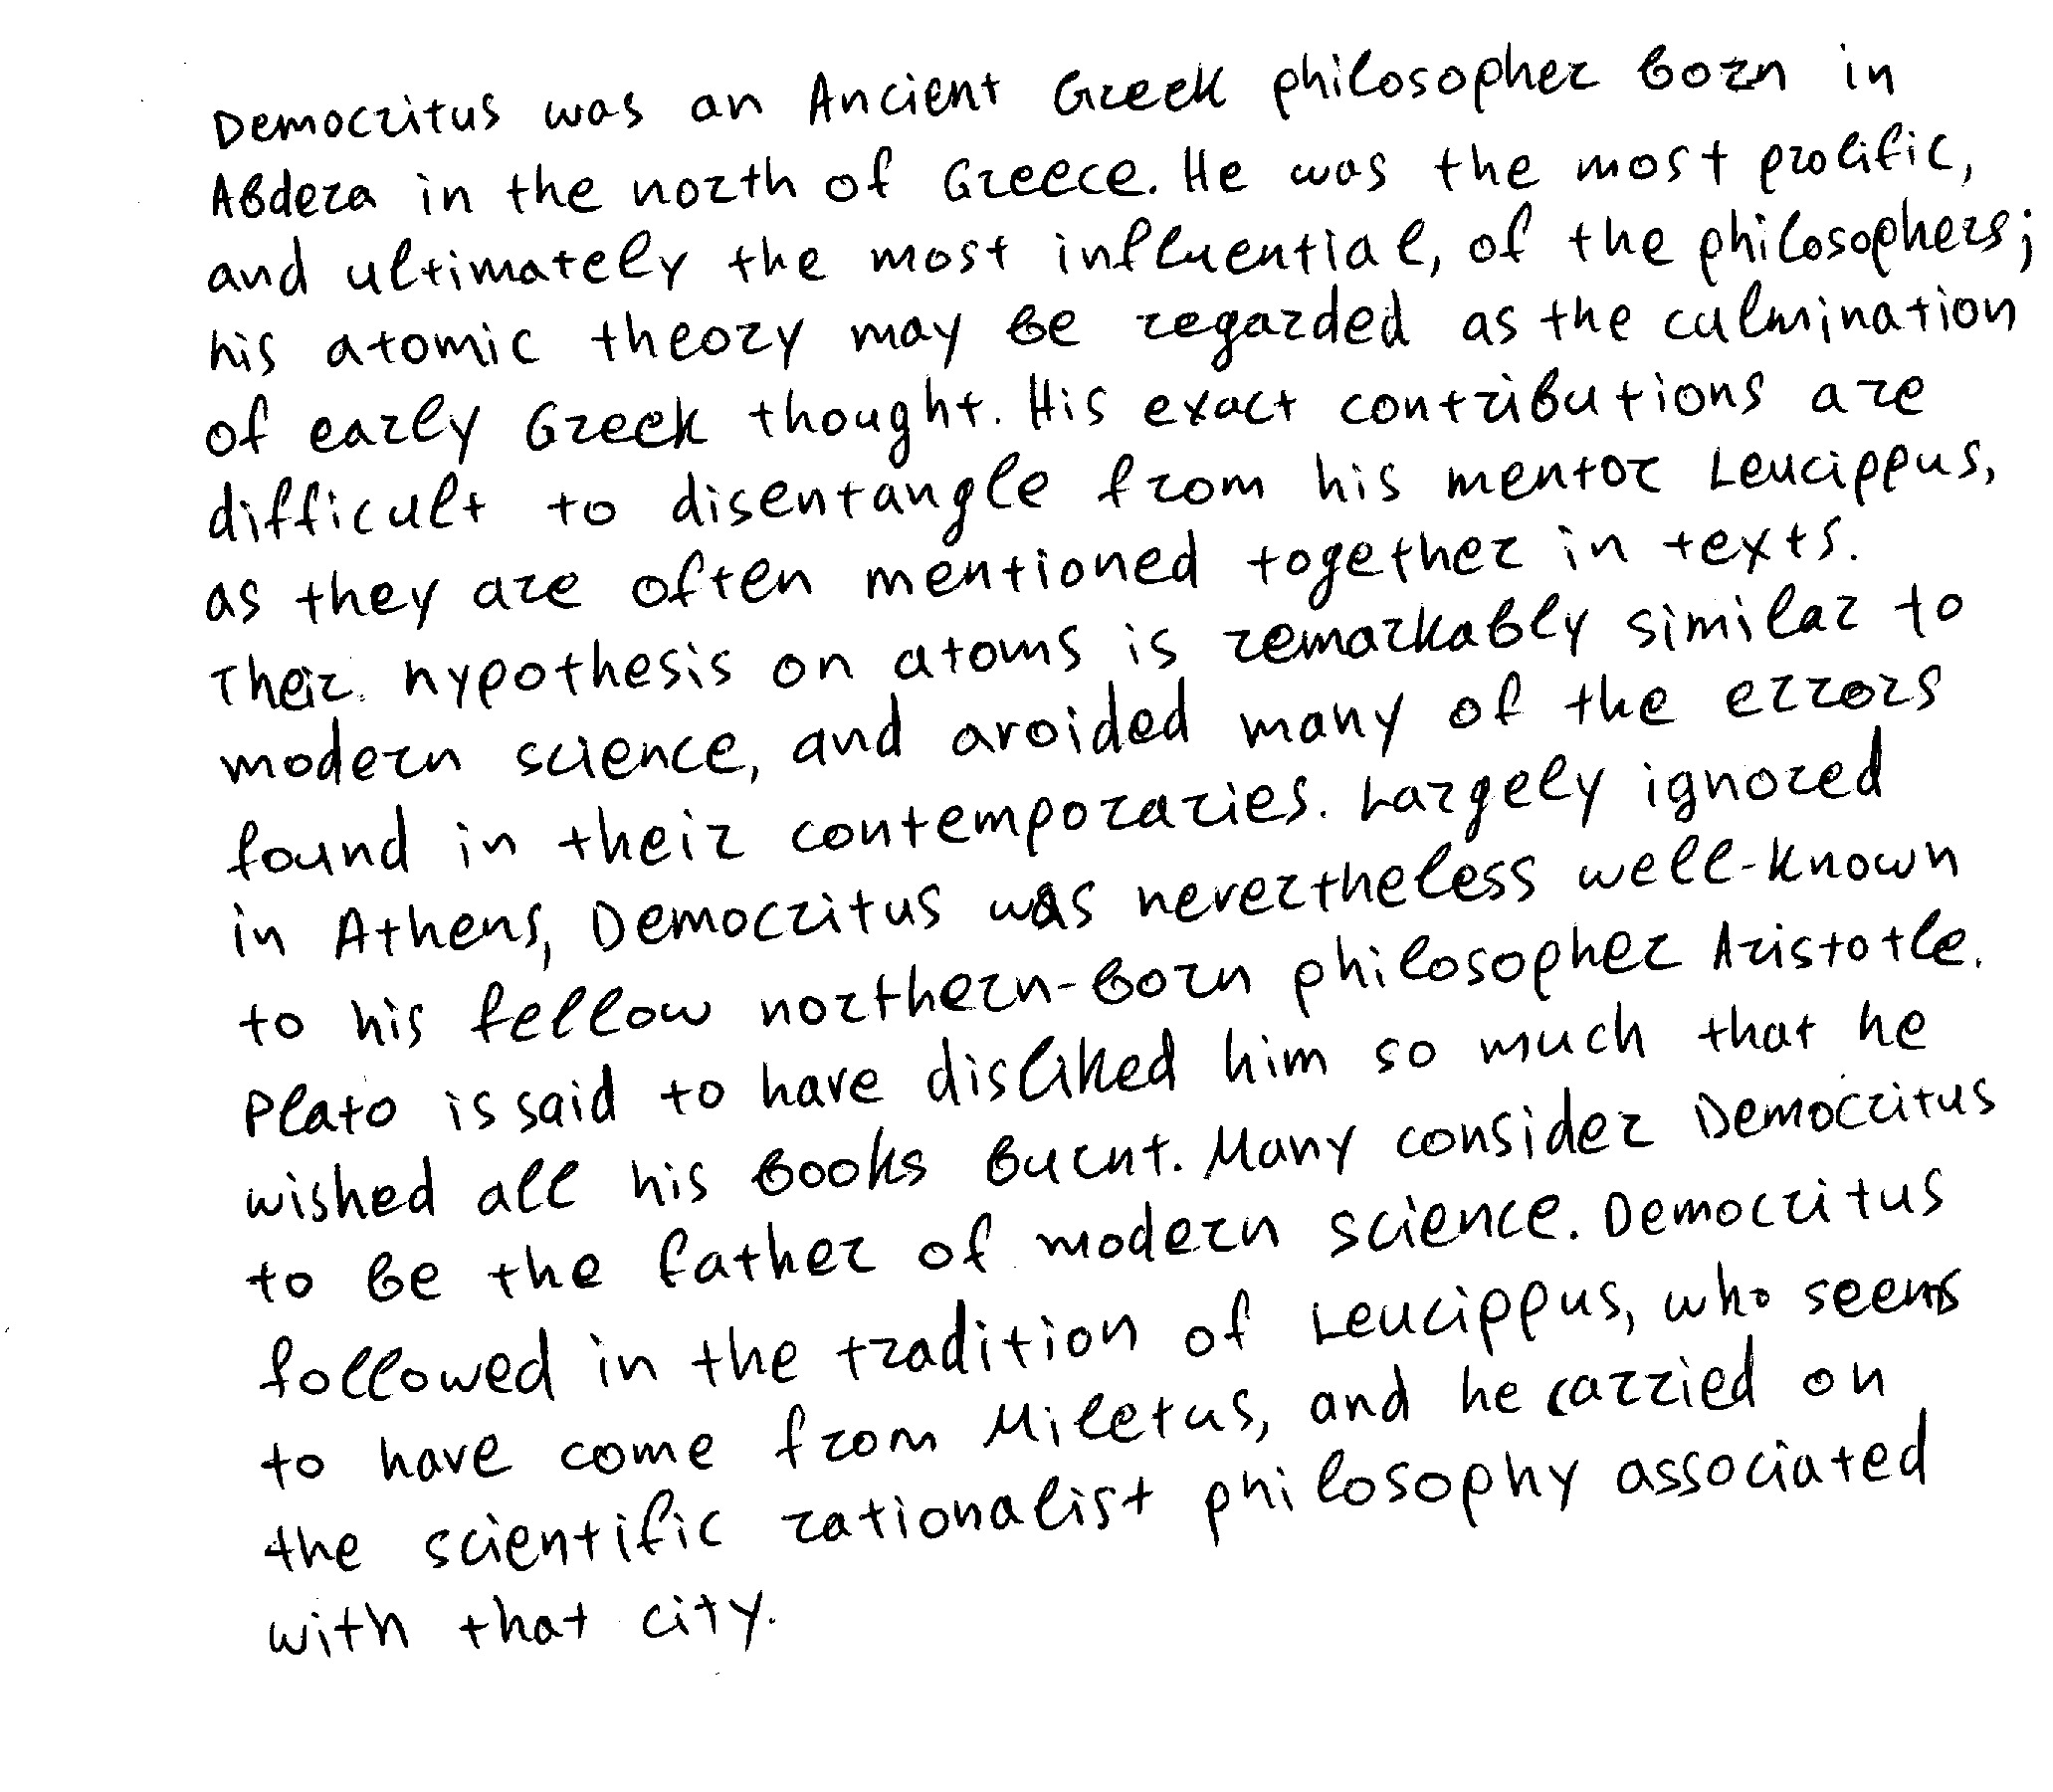 Democritus was an Ancient Greek philosopher born in
Abdera in the north of Greece. He was the most prolific,
and ultimately the most influential, of the philosophers;
his atomic theory may be regarded as the culmination
of early Greek thought. His exact contributions are
difficult to disentangle from his mentor Leucippus,
as they are often mentioned together in texts.
Their hypothesis on atoms is remarkably similar to
modern science, and avoided many of the errors
found in their contemporaries. Largely ignored
in Athens, Democritus was nevertheless well-known
to his fellow northern-born philosopher Aristotle.
Plato is said to have disliked him so much that he
wished all his books burnt. Many consider Democritus
to be the father of modern science. Democritus
followed in the tradition of Leucippus, who seems
to have come from Miletus, and he carried on
the scientific rationalist philosophy associated
with that city.